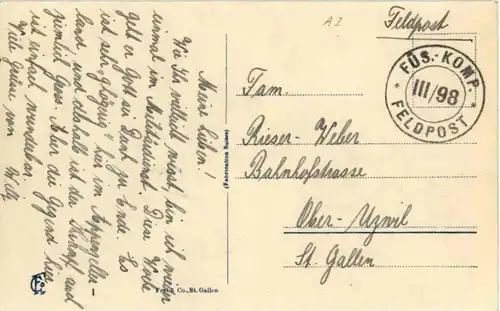 Meine Lieben!
Wie Ihr vielleicht wisst, bin ich wieder
einmal im Militärdienst. Diese Woche
geht er Gott sei Dank zu Ende. Es
ist sehr "ghögerig" hier im Appenzeller-
land und deshalb ist der Krampf auch
ziemlich gross. Aber die Gegend hier
ist einfach wunderbar.
Viele Grüsse von
Willy
(Fabrication Suisse)
Frei & Co., St. Gallen
A I
Feldpost
FÜS.-KOMP.
III/98
FELDPOST
Fam.
Rieser-Weber
Bahnhofstrasse
Ober-Uzwil
St. Gallen